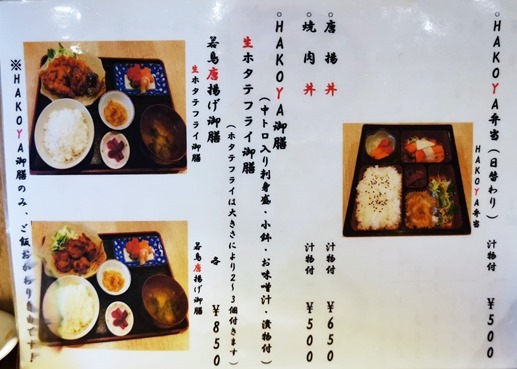 ○HAKOYA弁当(日替わり) 汁物付 ¥500
HAKOYA弁当
○唐揚丼 汁物付 ¥650
○焼肉丼 汁物付 ¥500
○HAKOYA御膳
(中トロ入り刺身盛・小鉢・お味噌汁・漬物付)
生ホタテフライ御膳
(ホタテフライは大きさにより2~3個付きます)
若鳥唐揚げ御膳 各 ¥850
生ホタテフライ御膳
若鳥唐揚げ御膳
※HAKOYA御膳のみ、ご飯おかわり自由です!